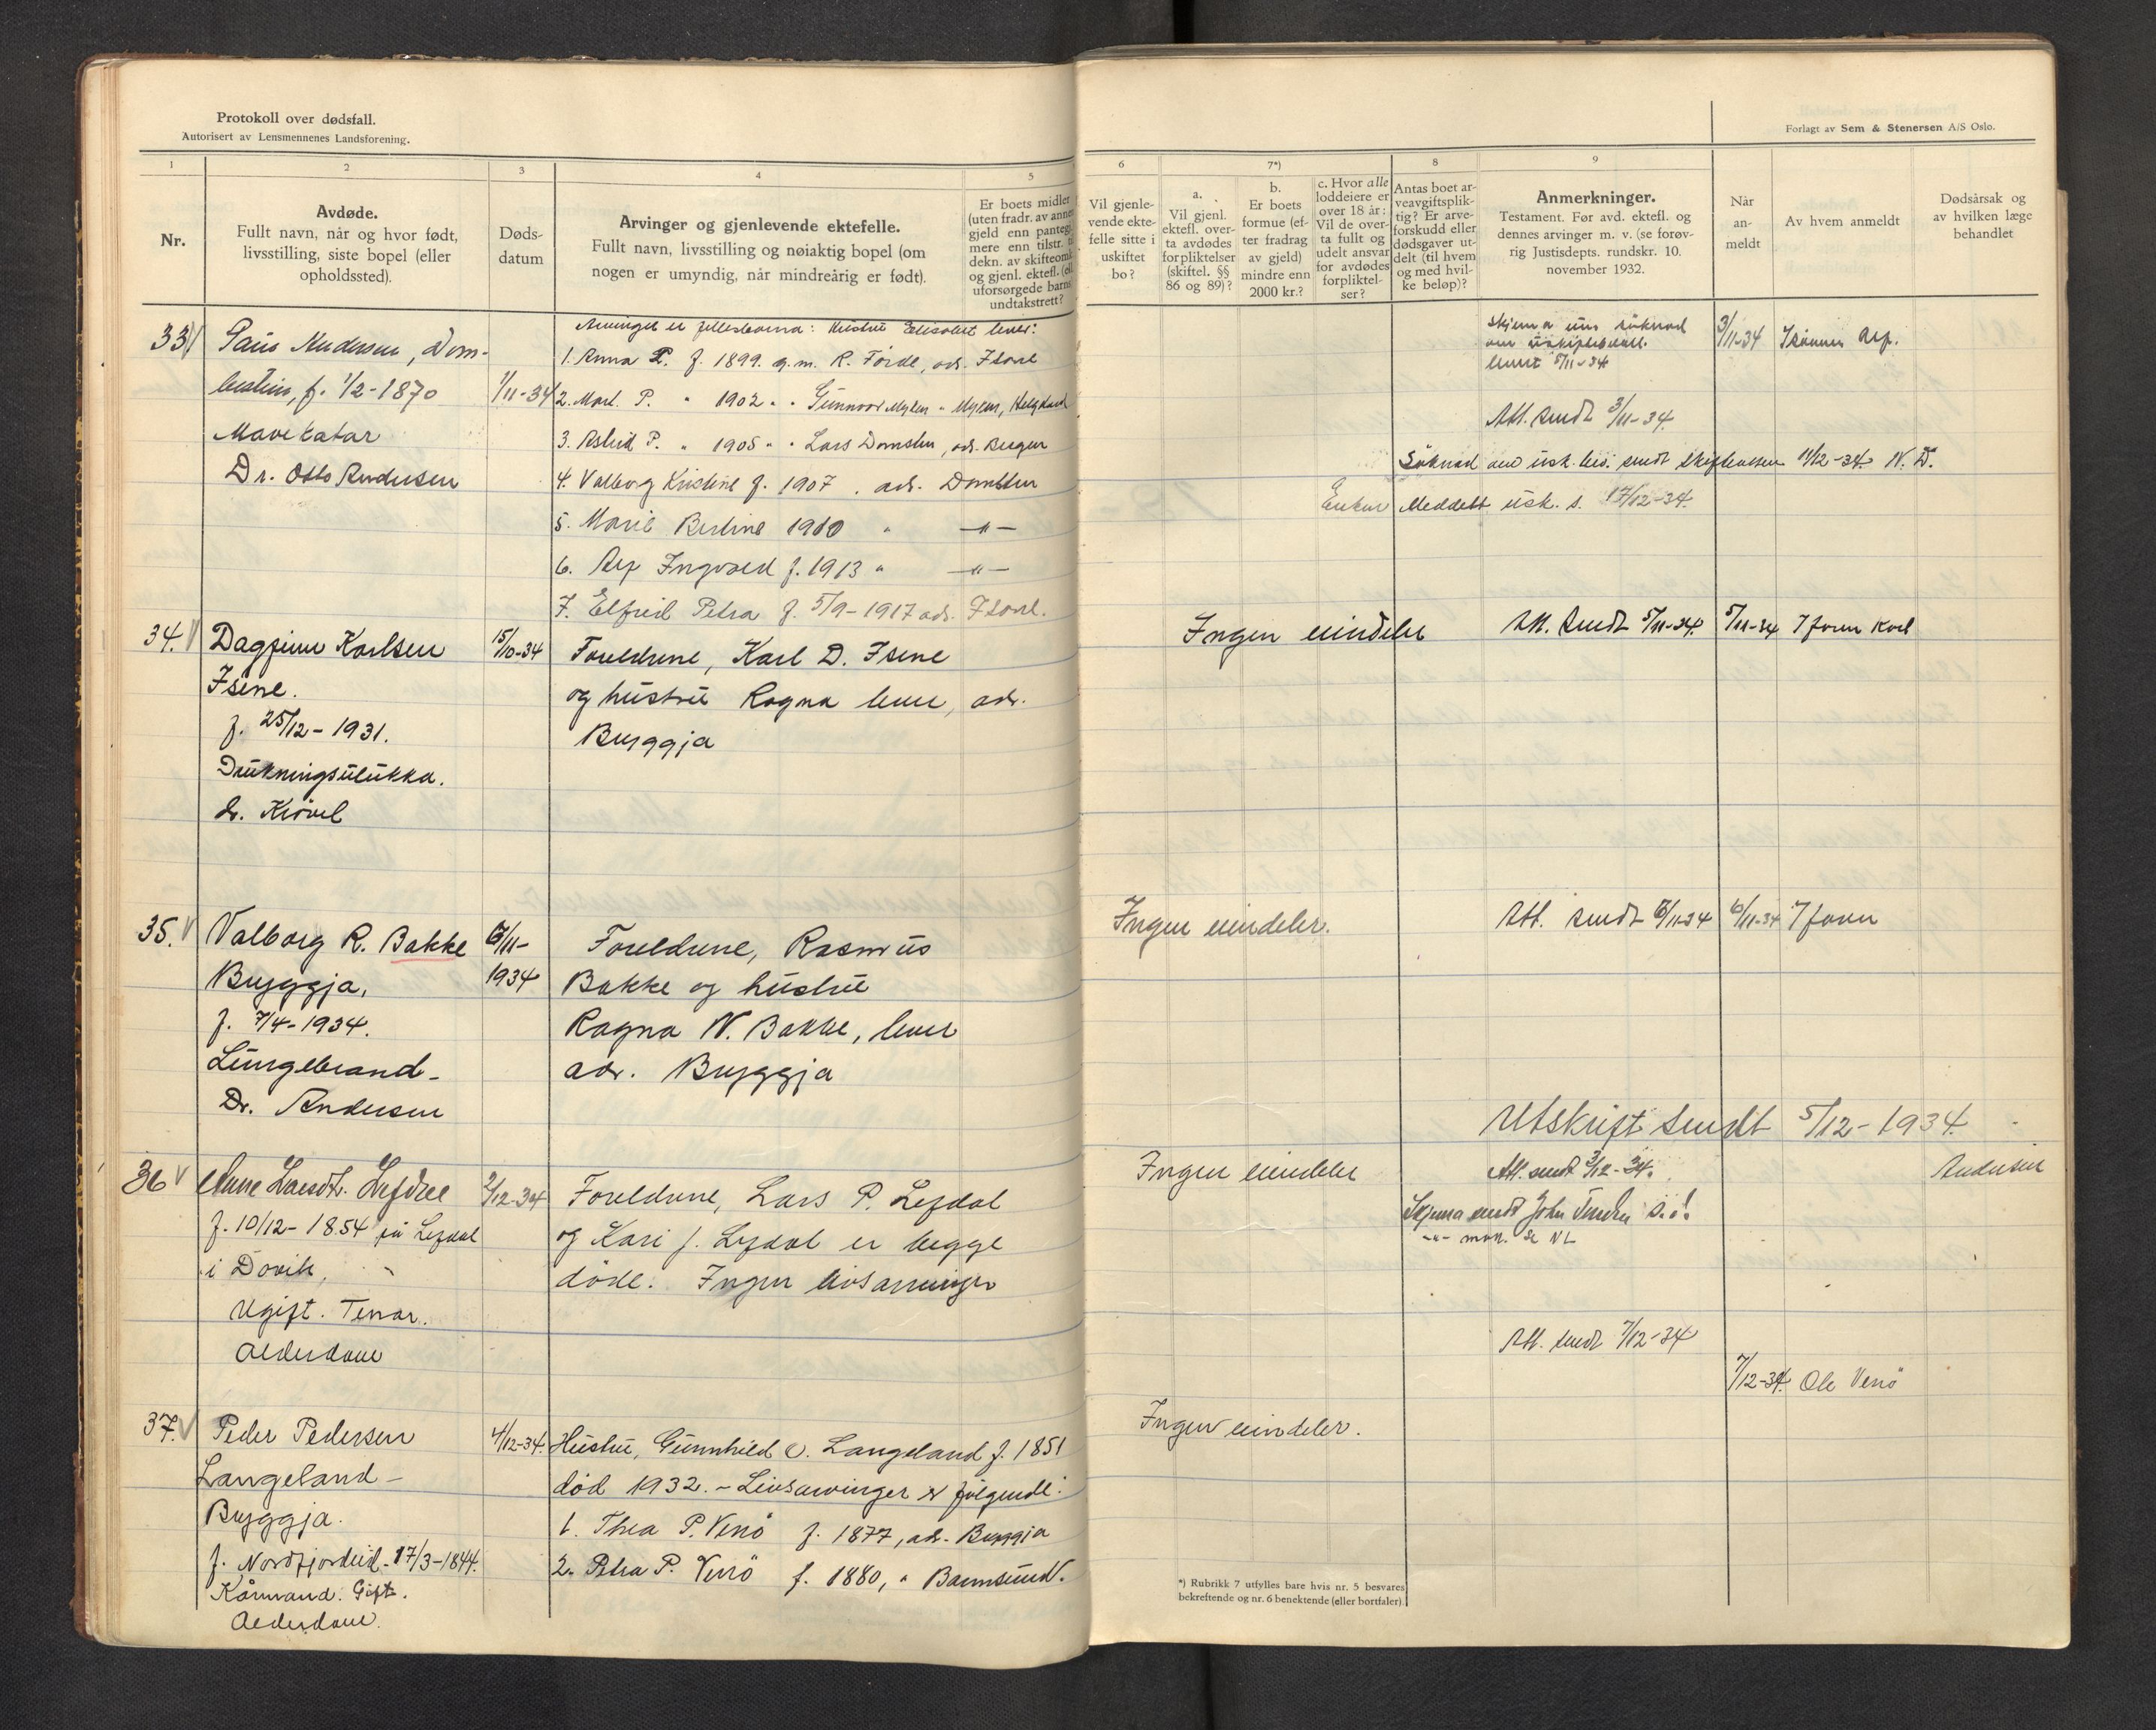 Protokoll over dødsfall.
Autorisert av Lensmennenes Landsforening.
1
2
3
4
5
Nr.
Avdøde.
Fullt navn, når og hvor født,
livsstilling, siste bopel (eller
opholdssted).
Døds-
datum
Arvinger og gjenlevende ektefelle.
Fullt navn, livsstilling og nøiaktig bopel (om
nogen er umyndig, når mindreårig er født).
Er boets midler
(uten fradr. av annen
gjeld enn pantegj.
mere enn tilstr. til
dekn. av skifteomk.
og gjenl. ektefl. (ell.
uforsørgede barns
undtakstrett?
33
Paus Andersen, Dom-
bestein, f. 1/2-1870
Mavekatar
Dr. Otto Andersen
1/11-34
Arvinger er fellesbarna: Hustru Elisabet lever:
1. Anna P. f. 1899. g.m. R. Förde, adr. Isane
2. Mart. P. " 1902 " " Gunnvor Myken " Myken, Helgeland
3. Astrid P. " 1905 " " Lars Domsten, adr. Bergen
4. Valborg Kristine f. 1907 . adr. Domsten
5. Marie Bertine 1910 " —"—
6. Alf Ingvald f. 1913 " —"—
7. Elfrid Petra f. 5/9-1917 adr. Isane.
34.
Dagfinn Karlsen
Isene.
f. 25/12-1931.
Drukningsulukka.
dr. Kiövel
15/10-34
Foreldrene, Karl D. Isene
og hustru Ragna lever, adr.
Bryggja
35.
Valborg R. Bakke
Bryggja,
f. 7/4-1934.
Lungebrand-
Dr. Andersen
6/11-
1934
Foreldrene, Rasmus
Bakke og hustru
Ragna N. Bakke, lever
adr. Bryggja
36
Anne Larsdt. Lefdal
f. 10/12-1854 på Lefdal
i Davik,
Ugift. Tenar.
Alderdom
2/12-34
Foreldrene, Lars P. Lefdal
og Kari J. Lefdal er begge
døde. Ingen livsarvinger
37.
Peder Pedersen
Langeland-
Bryggja.
f. Nordfjordeid. 17/3-1844.
Kårmand. Gift.
Alderdom.
4/12-34.
Hustru, Gunnhild O. Langeland f. 1851
död 1932. - Livsarvinger er fölgende:
1. Thea P. Venö f. 1877, adr. Bryggja
2. Petra P. Venö f. 1880, " Barmsund.
Forlagt av Sem & Stenersen A/S Oslo.
6
7*)
8
9
Vil gjenle-
vende ekte-
felle sitte i
uskiftet
bo?
a.
Vil gjenl.
ektefl. over-
ta avdødes
forpliktelser
(skiftel. §§
86 og 89)?
b.
Er boets
formue (ef-
ter fradrag
av gjeld)
mindre enn
2000 kr.?
c. Hvor alle
loddeiere er
over 18 år:
Vil de over-
ta fullt og
udelt ansvar
for avdødes
forpliktel-
ser?
Antas boet ar-
veavgiftsplik-
tig? Er arve-
forskudd eller
dødsgaver ut-
delt (til hvem
og med hvil-
ke beløp)?
Anmerkninger.
Testament. Før avd. ektefl. og
dennes arvinger m. v. (se forøv-
rig Justisdepts. rundskr. 10.
november 1932.
Når
an-
meldt
Av hvem anmeldt
Dødsårsak og
av hvilken læge
behandlet
skjema söknad
om
levert 5/11-34
3/11-34
Alf.
Att. sendt 3/11-34
Söknad om usk. bev. sendt 11/12-34. N. D.
Enken Meddelt usk. s. 17/12-34.
Ingen eiendeler
Att. sendt 5/11-34.
5/11-34
Karl
Ingen eiendeler.
Att. sendt 6/11-34
6/11-34
Utskrift sendt 5/12-1934.
Ingen eiendeler
Att. sendt 3/12-34.
Andersen
Skjema sendt John
Att. sendt 7/12-34
7/12-34.
Ole Venö
Ingen eiendeler.
*) Rubrikk 7 utfylles bare hvis nr. 5 besvares
bekreftende og nr. 6 benektende (eller bortfaler).